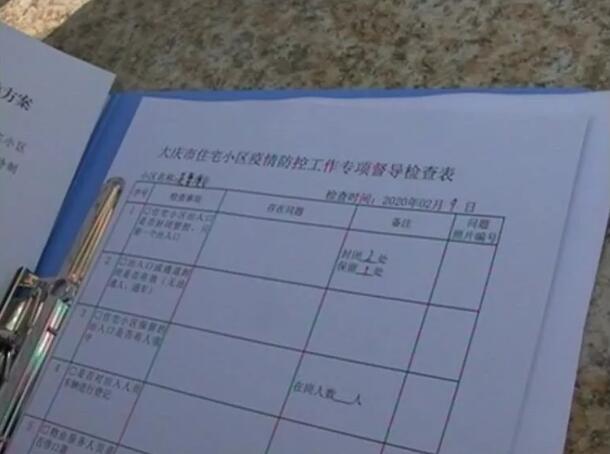 方案
小区
大庆市住宅小区疫情防控工作专项督导检查表
小区名称:
检查时间：2020年02月9日
序号 检查事项 存在问题 备注 问题
照片编号
1 □住宅小区出入口
是否封闭管控，只
留一个出入口
封闭2处
保留1处
2 □出入口或通道封
闭是否有效（无法
通人、通车）
3 □住宅小区保留的
出入口是否有人值
守
4 □是否对出入人员
车辆进行登记
在岗人数__人
5 □物业服务人员是
否佩口罩